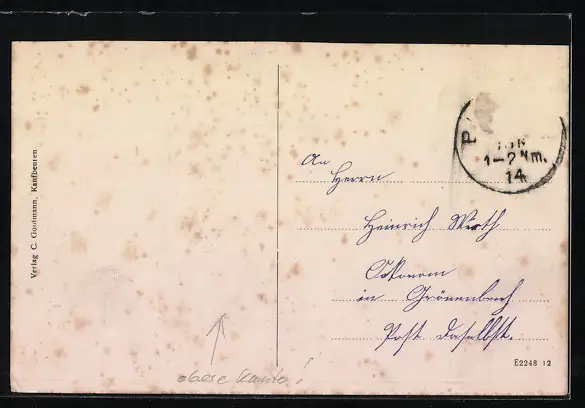 Verlag C. Gootmann, Kaufbeuren
P
1-2 Nm.
14
An
Herrn
Heinrich Werth
Oekonom
in Grönenbach
Post daselbst.
obere Kante!
E2248 12